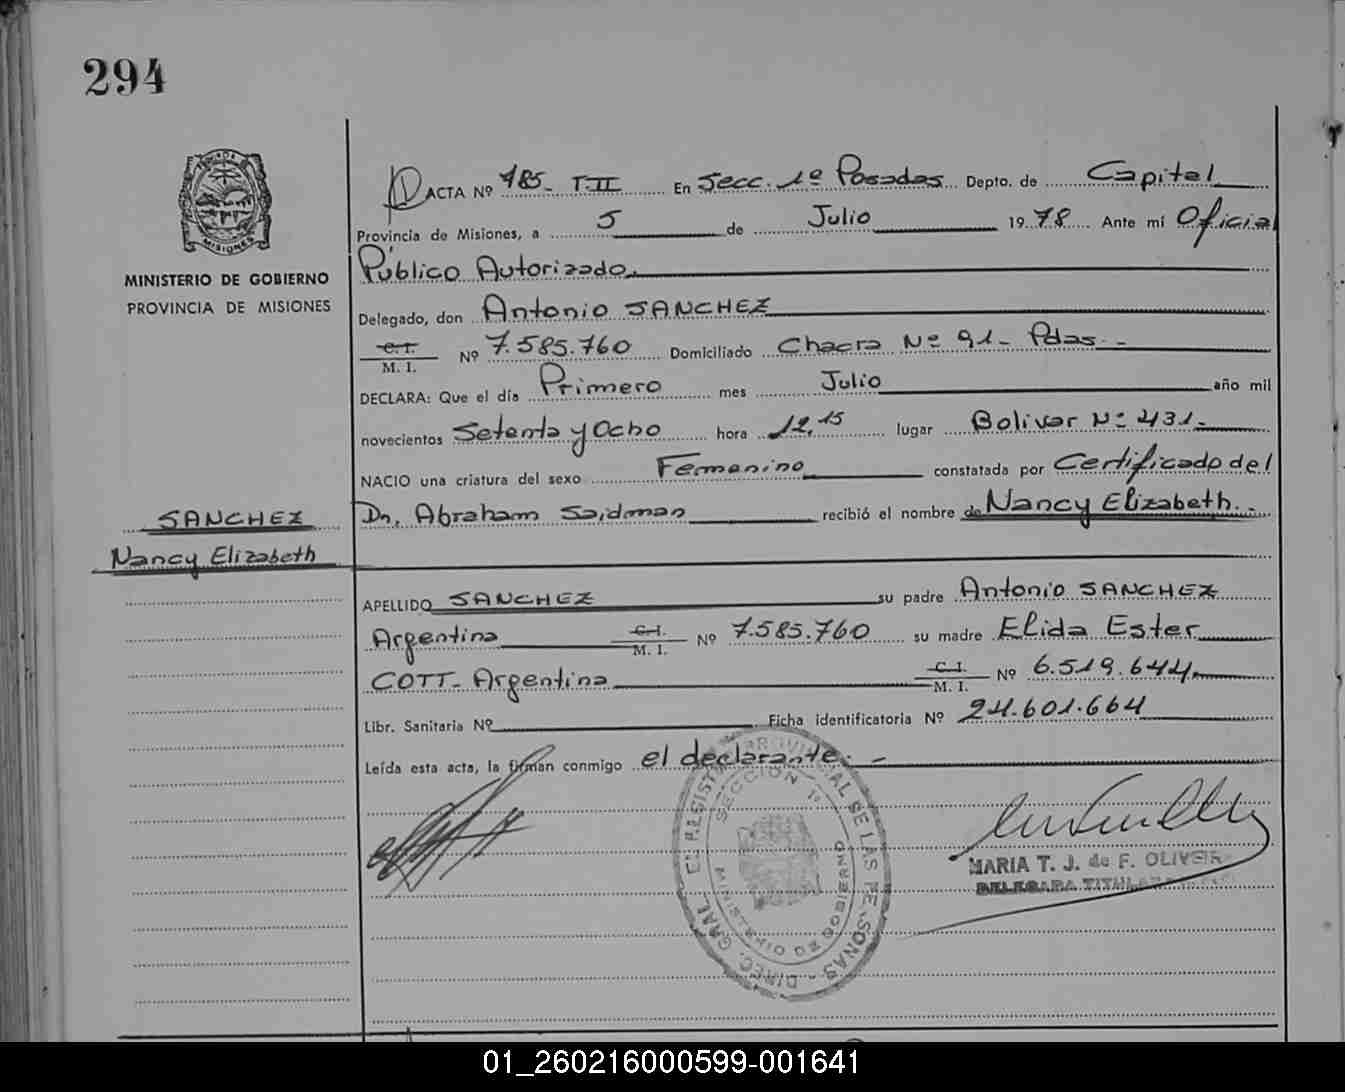 294
MISIONES
MINISTERIO DE GOBIERNO
PROVINCIA DE MISIONES
ACTA Nº 785- T-II En Secc. 1º Posadas Depto. de Capital
Provincia de Misiones, a 5 de Julio 1978 Ante mí Oficial
Público Autorizado.
Delegado, don Antonio SANCHEZ
C. I.
M. I. Nº 7.585.760 Domiciliado Chacra Nº 91- Pdas. -
DECLARA: Que el día Primero mes Julio año mil
novecientos Setenta y Ocho hora 12,15 lugar Bolivar Nº 431-
NACIO una criatura del sexo Femenino constatada por Certificado del
Dr. Abraham Saidman recibió el nombre de Nancy Elizabeth. -
SANCHEZ
Nancy Elizabeth
APELLIDO SANCHEZ su padre Antonio SANCHEZ
Argentina C. I.
M. I. Nº 7.585.760 su madre Elida Ester
COTT- Argentina C. I.
M. I. Nº 6.519.644-
Libr. Sanitaria Nº Ficha identificatoria Nº 24.601.664
Leída esta acta, la firman conmigo el declarante. -
SECCION 1º
MINISTERIO DE GOBIERNO
MARIA T. J. de F. OLIVEIR
DELEGADA TITULAR
01_260216000599-001641